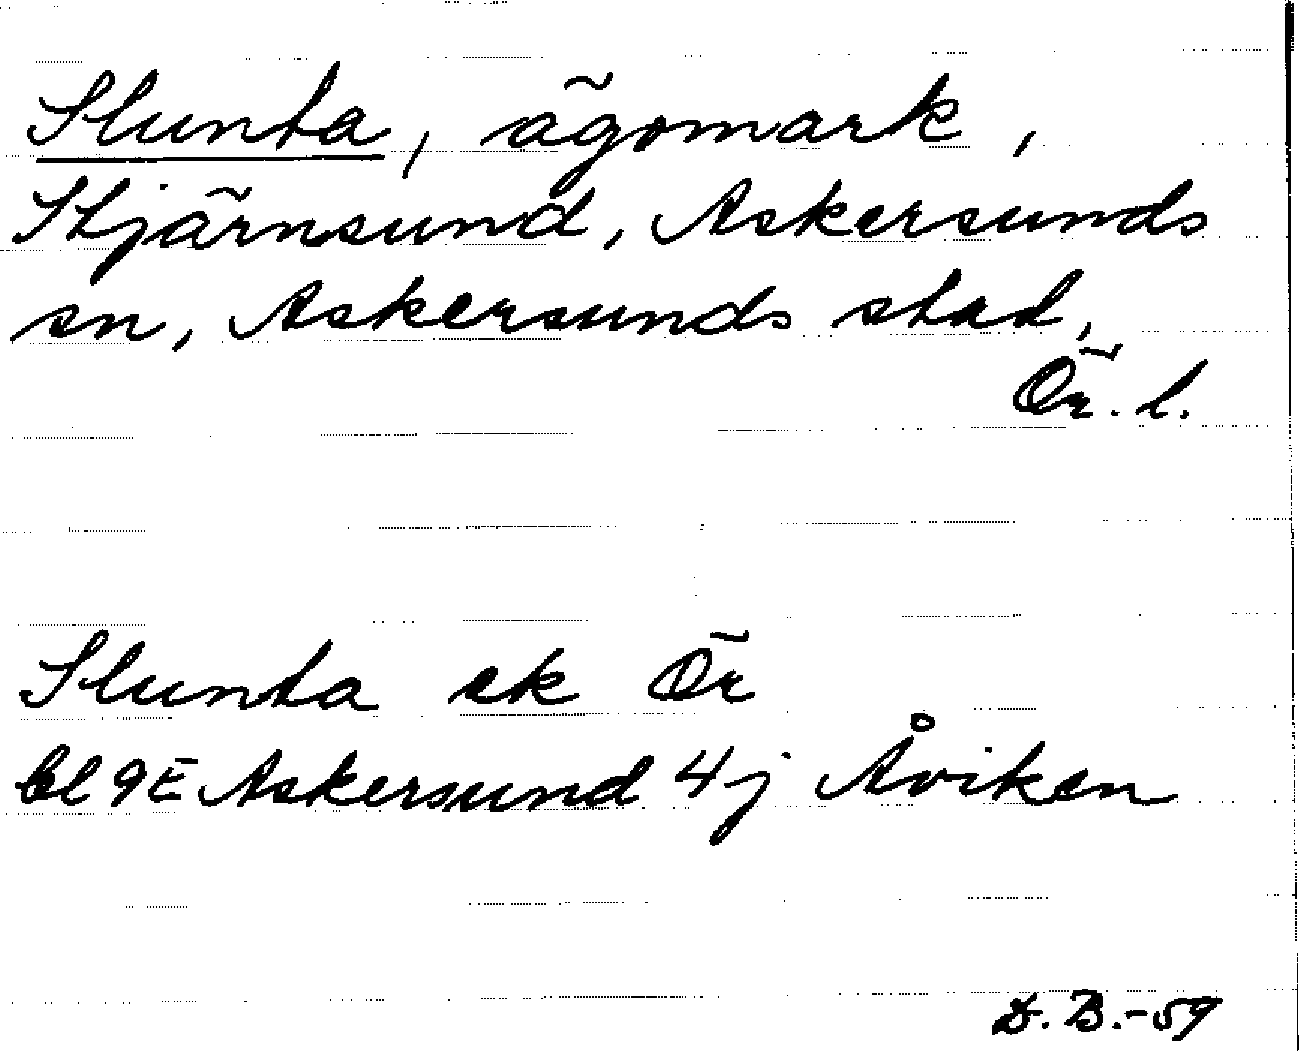 Slunta, ägomark,
Stjärnsund, Askersunds
sn, Askersunds stad,
Ör. l.
Slunta ek Ör
bl 9E Askersund 4j Åviken
D. B.-59